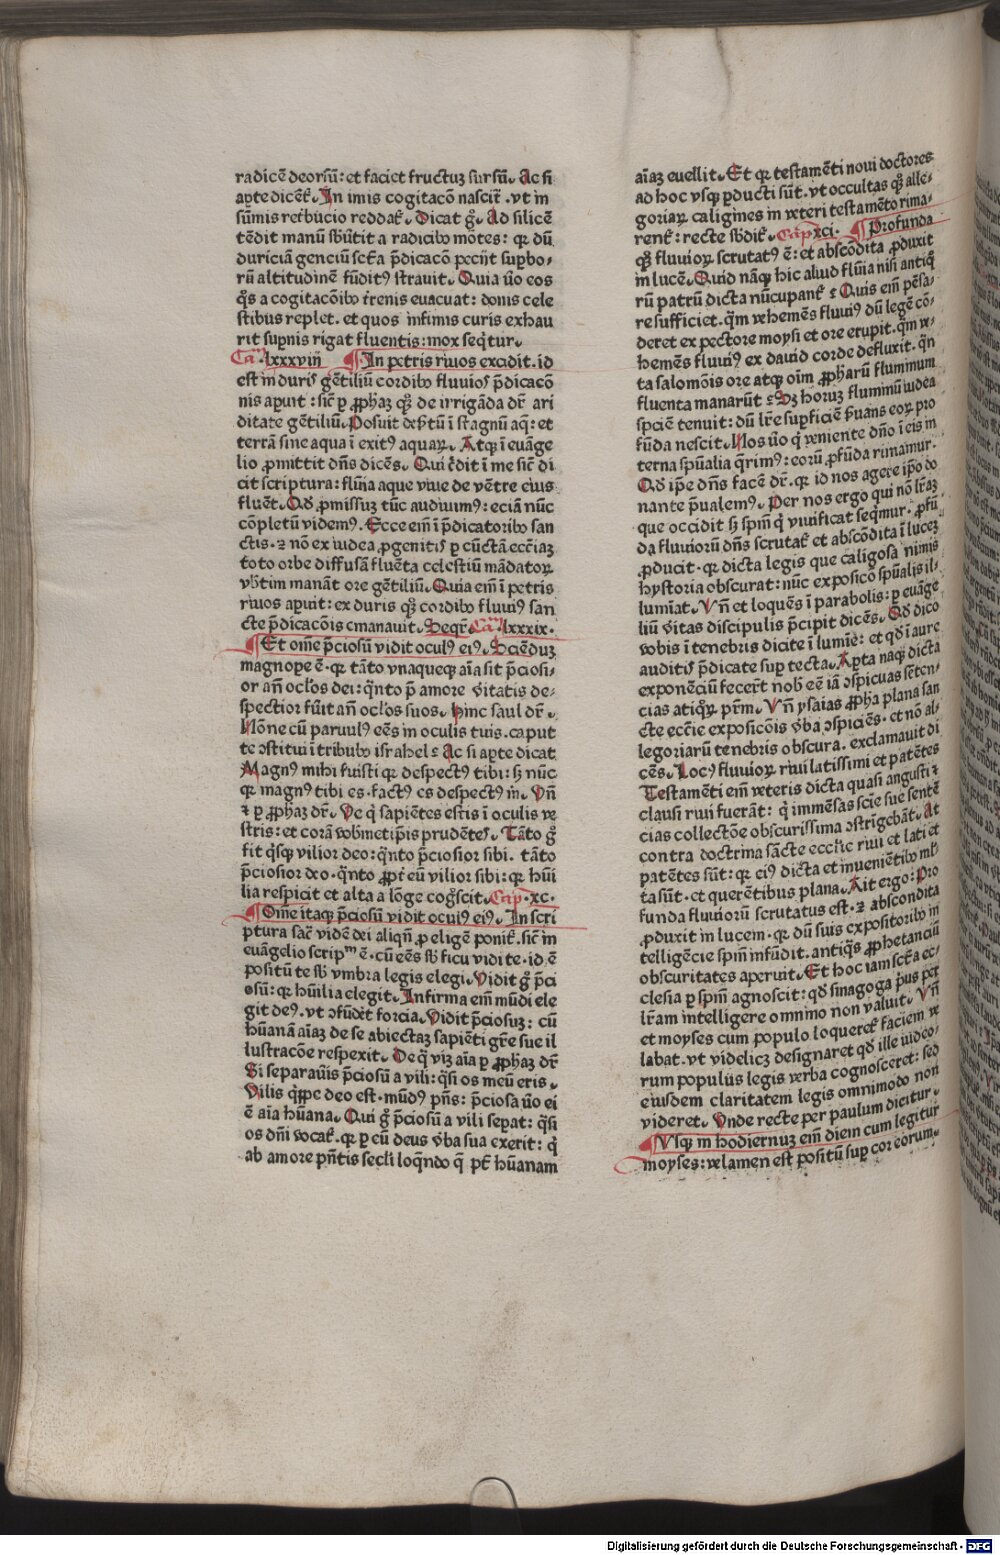 radicē deorsū: et faciet fructuꝫ sursū. Ac si
aꝑte dicēꝉ. In imis cogitacō nascit̄. vt in
sūmis retˀbucio reddaꝉ. Dicat gͦ. Ad silicē
tēdit manū sb̄utit a radicibꝰ mōtes: qꝛ dū
duriciā genciū sc̄ta p̄dicacō pecijt suꝑbo⸗
rū altitudinē fūditꝰ strauit. Quia v̄o eos
qͦs a cogitacōibꝰ tˀrenis euacuat: donis cele
stibus replet. et quos infimis curis exhau
rit suꝑnis rigat fluentis: mox seqͥtur.
Caᵐ. lxxxviij ¶ In petris riuos excidit. id
est in duris gētiliū cordibꝰ fluuios p̄dicacō
nis aꝑuit: sic̄ ꝑ ꝓphaꝫ qͦꝫ de irrigāda dr̄ ari
ditate gētiliū. Posuit desˀtū ī stagnū aq̄: et
terrā sine aqua ī exitꝰ aquaꝝ. Atqꝫ ī euāge
lio ꝓmittit dn̄s dicēs. Qui cͥdit ī me sic̄ di
cit scriptura: flūia aque viue de vētre eius
fluēt. Qd̄ ꝓmissuꝫ tūc audiuimꝰ: eciā nūc
cōpletū videmꝰ. Ecce eīm ī p̄dicatoribꝰ san
ctis. ⁊ nō ex iudea ꝓgenitis ꝑ cūctā ecc̄iaꝫ
toto orbe diffusā fluēta celestiū mādatoꝝ
vbˀtim manāt ore gētiliū. Quia eīm ī petris
riuos aꝑuit: ex duris qͦꝫ cordibꝰ fluuiꝰ san
cte p̄dicacōis emanauit. Seqr̄ Caᵐ lxxxix.
¶ Et om̄e p̄ciosū vidit oculꝰ eiꝰ. Sciēduꝫ
magnoꝑe ē. qꝛ tāto vnaqueqꝫ aīa sit p̄ciosi⸗
or an̄ ocl̓os dei: qͣnto p̄ amore v̓itatis de⸗
spectior fu̓it an̄ ocl̓os suos. Hinc saul dr̄.
Nōne cū paruulꝰ eēs in oculis tuis. caput
te ꝯstitui ī tribubꝰ israhel: Ac si aꝑte dicat
Magnꝰ mihi fuisti qꝛ despectꝰ tibi: sꝫ nūc
qꝛ magnꝰ tibi es. factꝰ es despectꝰ m̄. Vn̄
⁊ ꝑ ꝓphaꝫ dr̄. Ve qͥ sapiētes estis ī oculis ve
stris: et corā vobˀmetip̄is prudētes. Tāto gͦ
fit qͥsqꝫ vilior deo: qͣnto p̄ciosior sibi. tāto
p̄ciosior deo. qͣnto ꝓpt̄ eū vilior sibi: qꝛ hūi
lia respicit et alta a lōge cogͦscit. Capᵐ. xc.
¶ Om̄e itaqꝫ p̄ciosū vidit oculꝰ eiꝰ. In scri
ptura sac̄ vidē dei aliqn̄ ꝓ eligē poniꝉ. sic̄ in
euāgelio scripᵐ ē. cū eēs sb̄ ficu vidi te. id ē
positū te sb̄ vmbra legis elegi. Vidit gͦ p̄ci
osū: qꝛ hūilia elegit. Infirma eīm mūdi ele
git deꝰ. vt ꝯfūdēt forcia. Vidit p̄ciosuꝫ: cū
hūanā aīaꝫ de se abiectaꝫ sapiēti gr̄e sue il
lustracōe respexit. De qͥ viꝫ aīa ꝑ ꝓphaꝫ dr̄
Si separauis p̄ciosū a vili: qͣsi os meū eris.
Vilis qͥppe deo est. mūdꝰ pn̄s: p̄ciosa v̄o ei
ē aīa hūana. Qui gͦ p̄ciosū a vili seꝑat: qͣsi
os dn̄i vocaꝉ. qꝛ ꝑ eū deus v̓ba sua exerit: qͥ
ab amore pn̄tis secl̓i loqn̄do q̄ pt̄ hūanam
aīaꝫ euellit. Et qꝛ testamēti noui doctores
ad hoc vsqꝫ ꝑducti sūt. vt occultas qͦꝫ alle⸗
goriaꝝ caligines in veteri testamēto rima⸗
renꝉ: recte sb̄diꝉ. Capᵐ xci. ¶ Profunda
qͦꝫ fluuioꝝ scrutatꝰ ē: et abscōdita ꝓduxit
in lucē. Quid nāqꝫ hic aliud flūia nisi antiqͦ
rū patrū dicta nūcupanꝉ: Quis eīm pēsa⸗
re sufficiet. qͣm vehemēs fluuiꝰ dū legē cō⸗
deret ex pectore moysi et ore erupit. qͣm ve⸗
hemēs fluuiꝰ ex dauid corde defluxit. qͣn
ta salomōis ore atqꝫ oīm ꝓpharū fluminum
fluenta manarūt: Sꝫ horuꝫ fluminū iudea
spciē tenuit: dū lr̄e suꝑficiē s̄uans eoꝝ pro
fūda nescit. Nos v̄o qͥ veniente dn̄o ī eis in
terna spūalia qͣrimꝰ: eorū ꝓfūda rimamur.
Qd̄ ip̄e dn̄s facē dr̄. qꝛ id nos agere ip̄o do
nante p̄ualemꝰ. Per nos ergo qui nō lr̄aꝫ
que occidit sꝫ spm̄ qͥ viuificat seqͥmur. ꝓfū
da fluuiorū dn̄s scrutaꝉ et abscōdita ī luceꝫ
ꝓducit. qꝛ dicta legis que caligosa nimis
hystoria obscurat: nūc exposicō spūalis il⸗
lumīat. Vn̄ et loquēs ī parabolis: ꝑ euāge
liū v̓itas discipulis p̄cipit dicēs. Qd̄ dico
vobis ī tenebris dicite ī lumīe: et qd̄ ī aure
auditis p̄dicate suꝑ tecta. Aꝑta naqꝫ dicta
exponēciū fecerūt nob̄ eē iā ꝯspicuas sētēn⸗
cias atiqͦꝝ pr̄m. Vn̄ ysaias ꝓpha plana san
cte ecc̄ie exposicōis v̓ba ꝯspiciēs. et nō al⸗
legoriarū tenebris obscura. exclamauit di
cēs. Locꝰ fluuioꝝ riui latissimi et patētes
Testamēti eīm veteris dicta quasi angusti ⁊
clausi riui fuerāt: qͥ immēsas scīe sue sentē
cias collectōe obscurissima ꝯstrīgebāt. At
contra doctrina sācte ecclīe riui et lati et
patētes sūt. qꝛ eiꝰ dicta et inueniētibꝰ ml̓
ta sūt. et querētibus plana. Ait ergo: Pro
funda fluuiorū scrutatus est. ⁊ abscondita
ꝓduxit in lucem. qꝛ dū suis expositoribꝰ in
telligēcie spm̄ infūdit. antiqͦs ꝓphetanciū
obscuritates aperuit. Et hoc iam sc̄ta ec⸗
clesia ꝑ spm̄ agnoscit: qd̄ sinagoga p̄us per
lr̄am intelligere omnimo non valuit. Vn̄
et moyses cum populo loquereꝉ faciem ve
labat. vt videlicꝫ designaret qd̄ ille iudeo⸗
rum populus legis verba cognosceret: sed
eiusdem claritatem legis omnimodo non
videret. Vnde recte per paulum dicitur.
¶ Vsqꝫ in hodiernuꝫ eīm diem cum legitur
moyses: velamen est positū suꝑ cor eorum.
Digitalisierung gefördert durch die Deutsche Forschungsgemeinschaft - DFG